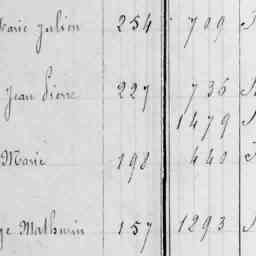 Marie Julien 254 709
Jean Pierre 227 736
1479
Marie 198 440
Mathurin 157 1293